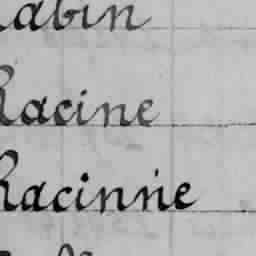 Rabin
Racine
Racinne